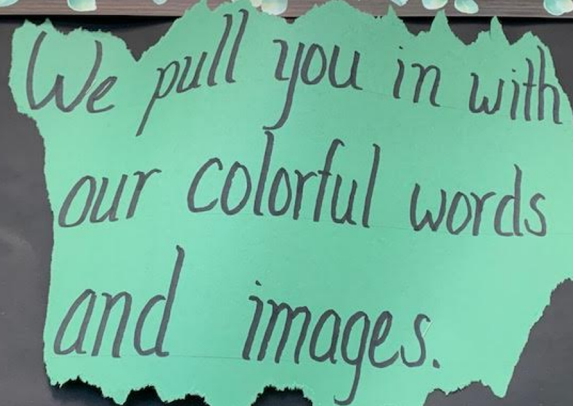 We pull you in with
our colorful words
and images.